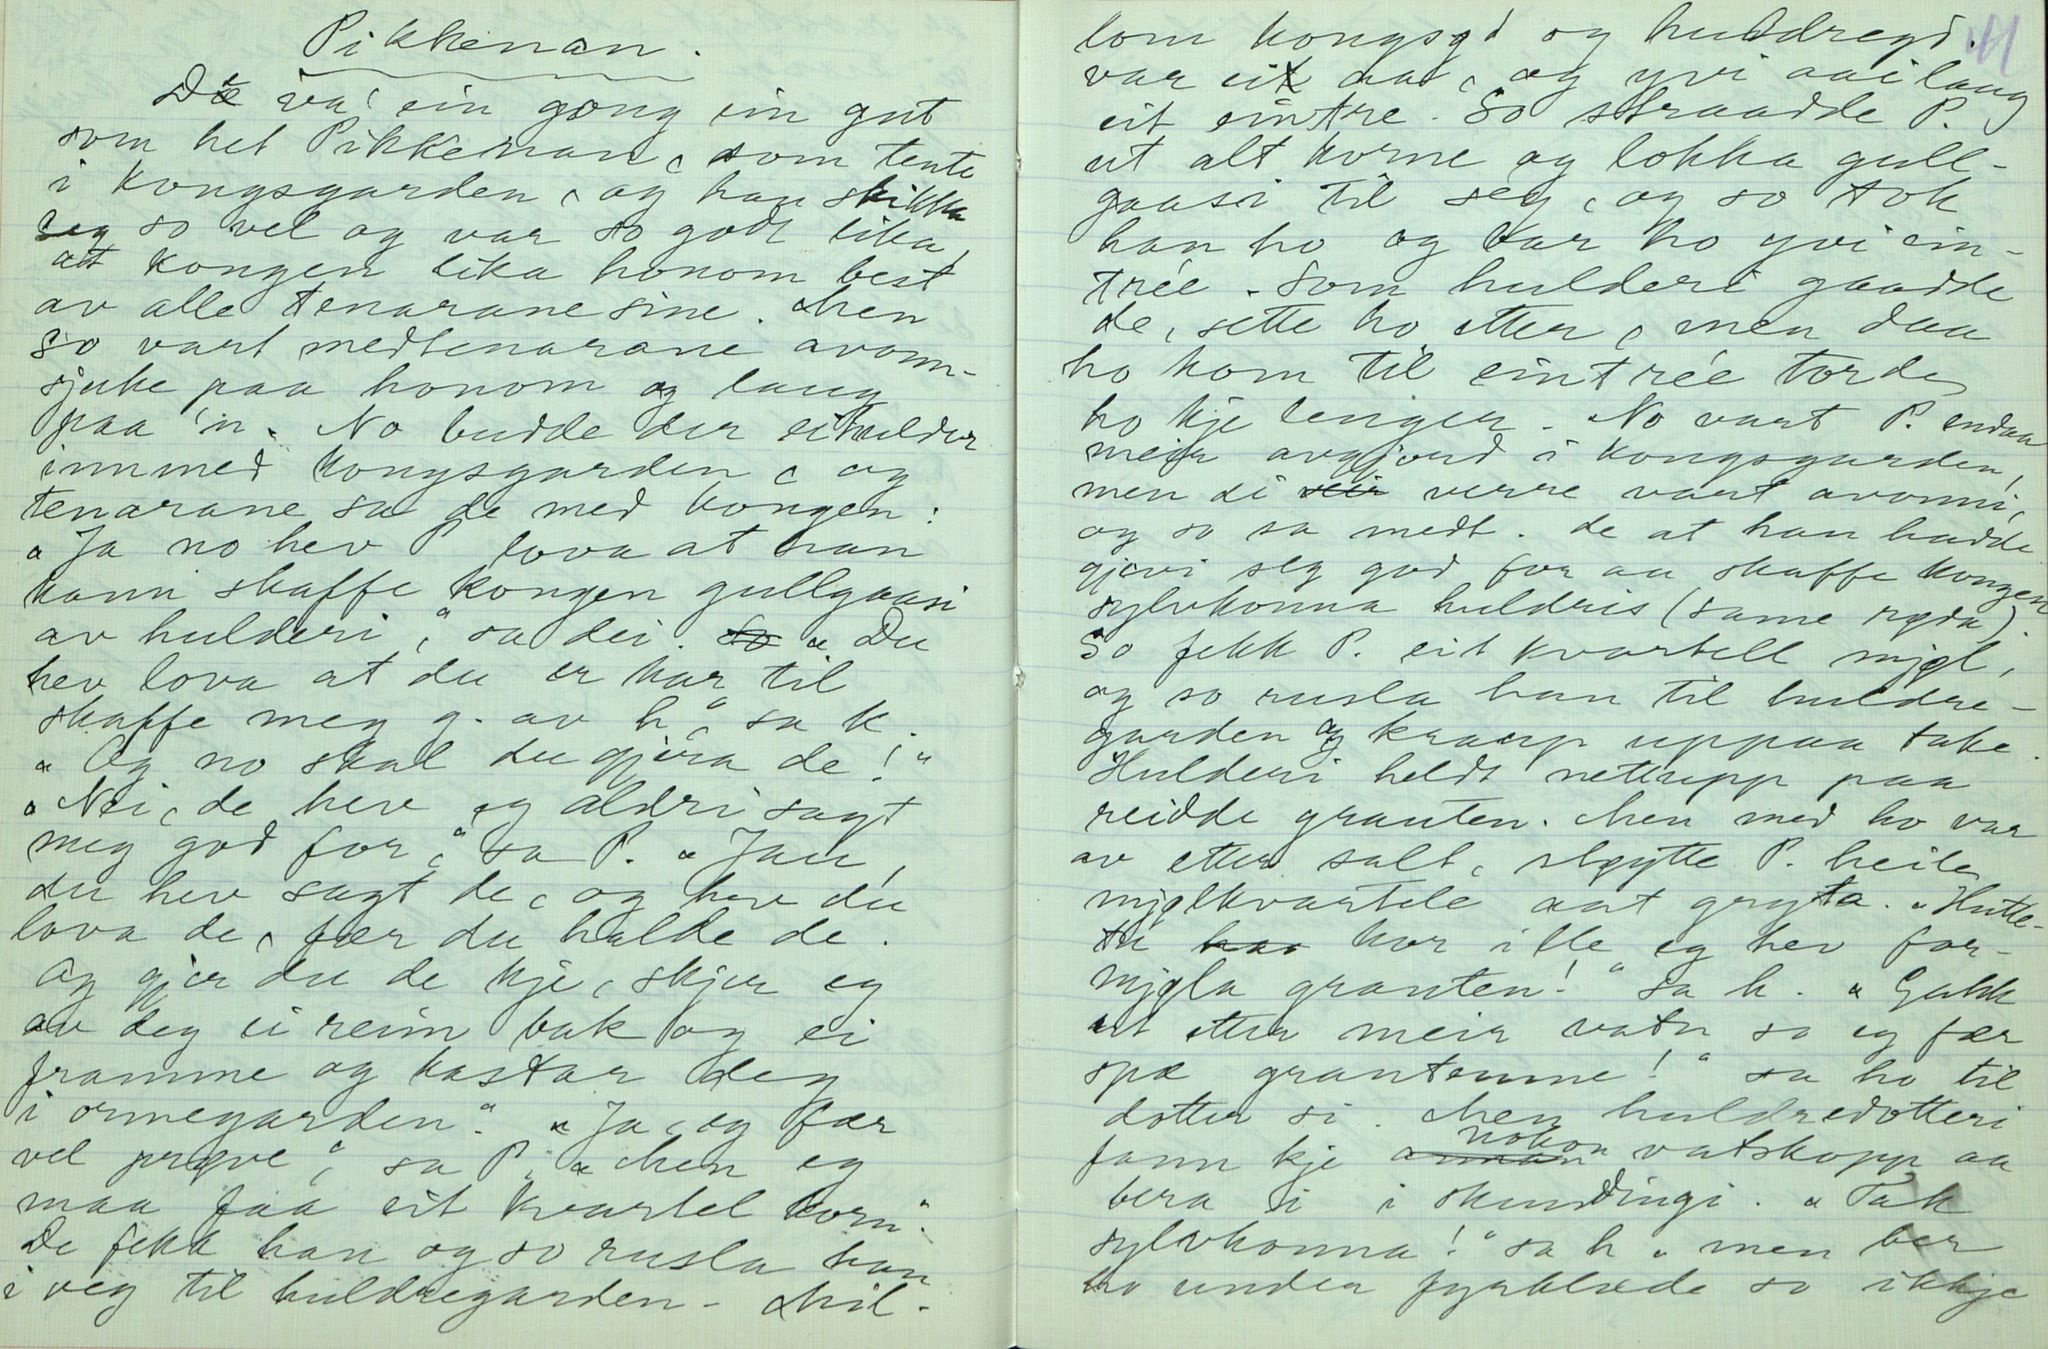 Pikkenan.
Dæ va, ein gong ein gut
som het Pikkenan, som tente
i kongsgarden, og han skikka
seg so vel og var so godt lika,
att kongen lika honom best
av alle tenarane sine. Men
so vart medtenarane avown-
sjuke paa honom og laug
paa 'n. No budde der ei hulder
innmed kongsgarden, og
tenarane sa de med kongen:
"Ja no hev P lova at han
kann skaffe kongen gullgaasi
av hulderi," sa dei. so "Du
hev lova at du er kar til
skaffe meg g. av h," sa k.
"Og no skal du gjera de!"
"Nei, de hev eg aldri sagt
meg god for," sa P. "Jau,
du hev sagt de, og hev du
lova de, fær du halde de.
Og gjer du de kje, skjer eg
av deg ei reim bak og ei
framme og kastar deg
i ormegarden." "Ja, eg fær
vel prøve," sa P, "Men eg
maa faa eit kvartel korn".
De fekk han og so rusla han
i veg til huldregarden - Mil-
11
lom kongsgd og huldregd.
var eit aa, og yvi aai laag
eit eintre. So straadde P.
ut alt korne og lokka gull-
gaasi til seg, og so tok
han ho og bar ho yvi ein-
trée. Som hulderi gaadde
de, sette ho etter, men daa
ho kom til eintrée torde
ho kje lenger. No vart P. endaa
meir avgjord i kongsgarden,
men di verre vart avonni,
og so sa medt. de at han hadde
gjevi seg god for aa skaffe kongen
sylvkonna huldris (same rgda).
So fekk P. eit kvartell mjøl,
og so rusla han til huldre-
garden og kraup uppaa take.
Hulderi heldt nettupp paa
reidde grauten. Men med ho var
av etter salt, støytte P. heile
mjølkvartele aat gryta. "Hutte-
tu kor ille eg hev for-
mjøla grauten!" sa h. "Gakk
ut etter meir vatn so eg fær
spæ grautenne!" sa ho til
dotter si. Men huldredotteri
fann kje nokon vatskopp aa
bera i i skundingi. "Tak
sylvkonna!" sa h "men ber
ho under fyrklæde so ikkje